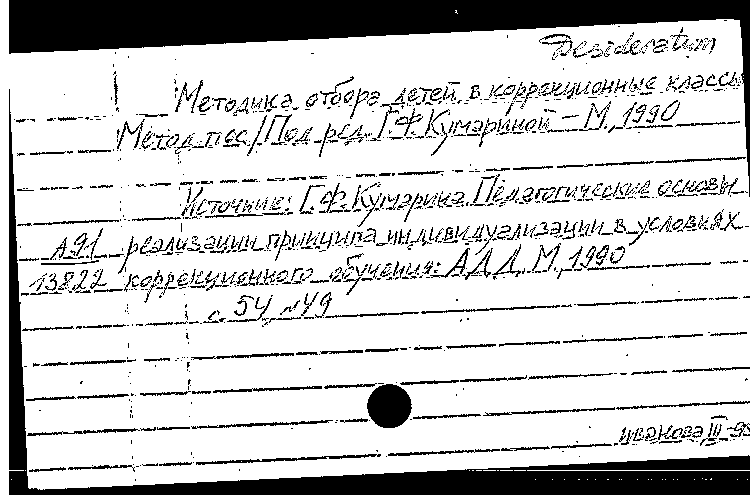 Desideratum
Методика отбора детей в коррекционные классы
Метод. пос / Под ред. Г.Ф. Кумариной – М., 1990
Источник: Г.Ф. Кумарина. Педагогические основы
А91 реализации принципа индивидуализации в условиях
13822 коррекционного обучения: АДД. М., 1990
с. 54, №49
Иванова III-95